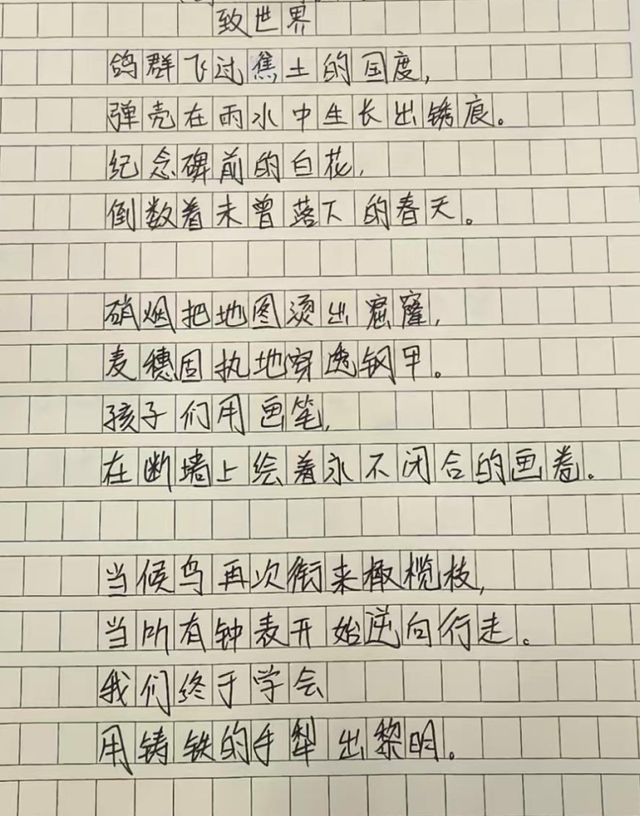 致世界
鸽群飞过焦土的国度,
弹壳在雨水中生长出锈痕。
纪念碑前的白花,
倒数着未曾落下的春天。
硝烟把地图烫出窟窿,
麦穗固执地穿透钢甲。
孩子们用画笔,
在断墙上绘着永不闭合的画卷。
当候鸟再次衔来橄榄枝,
当所有钟表开始逆向行走。
我们终于学会
用铸铁的手犁出黎明。